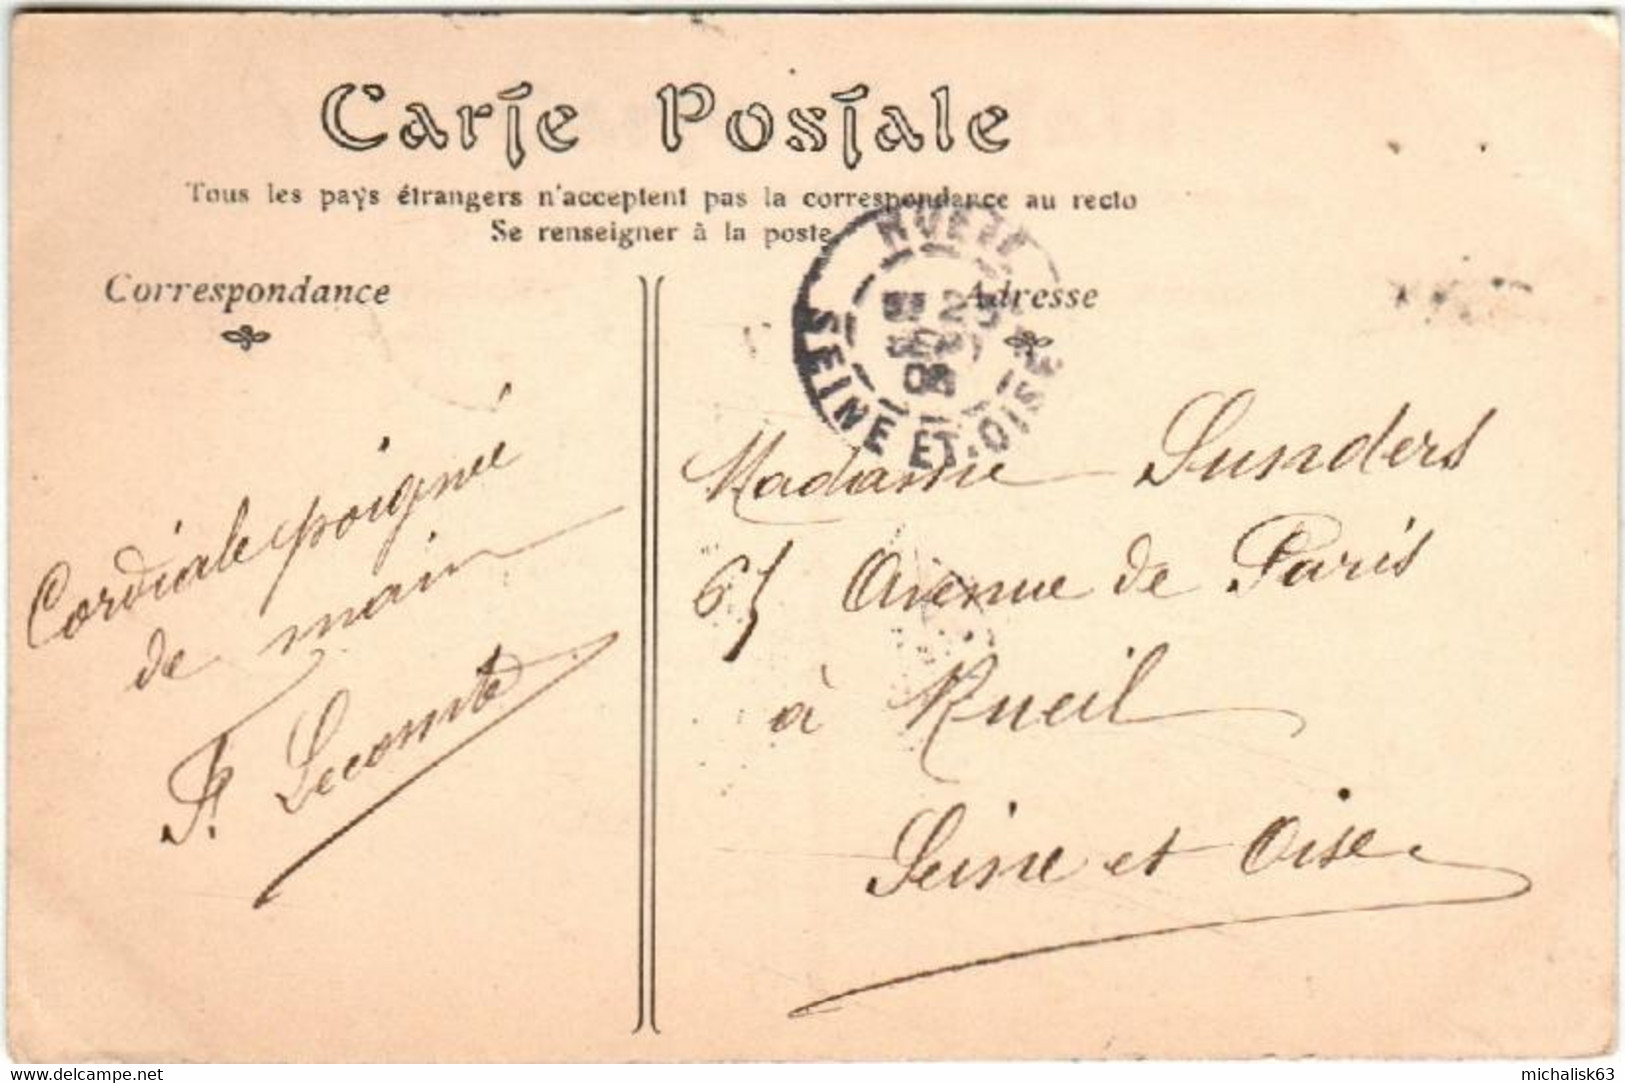 Carte Postale
Tous les pays étrangers n'acceptent pas la correspondance au recto
Se renseigner à la poste
Correspondance
Adresse
RUEIL
SEINE ET-OISE
08
Cordiale poignée
de main
Lecomte
Madame Sunders
65 Avenue de Paris
à Rueil
Seine et Oise
www.delcampe.net
michalisk63